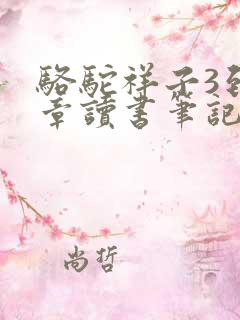 駱駝祥子3到
章讀書筆記
尚哲